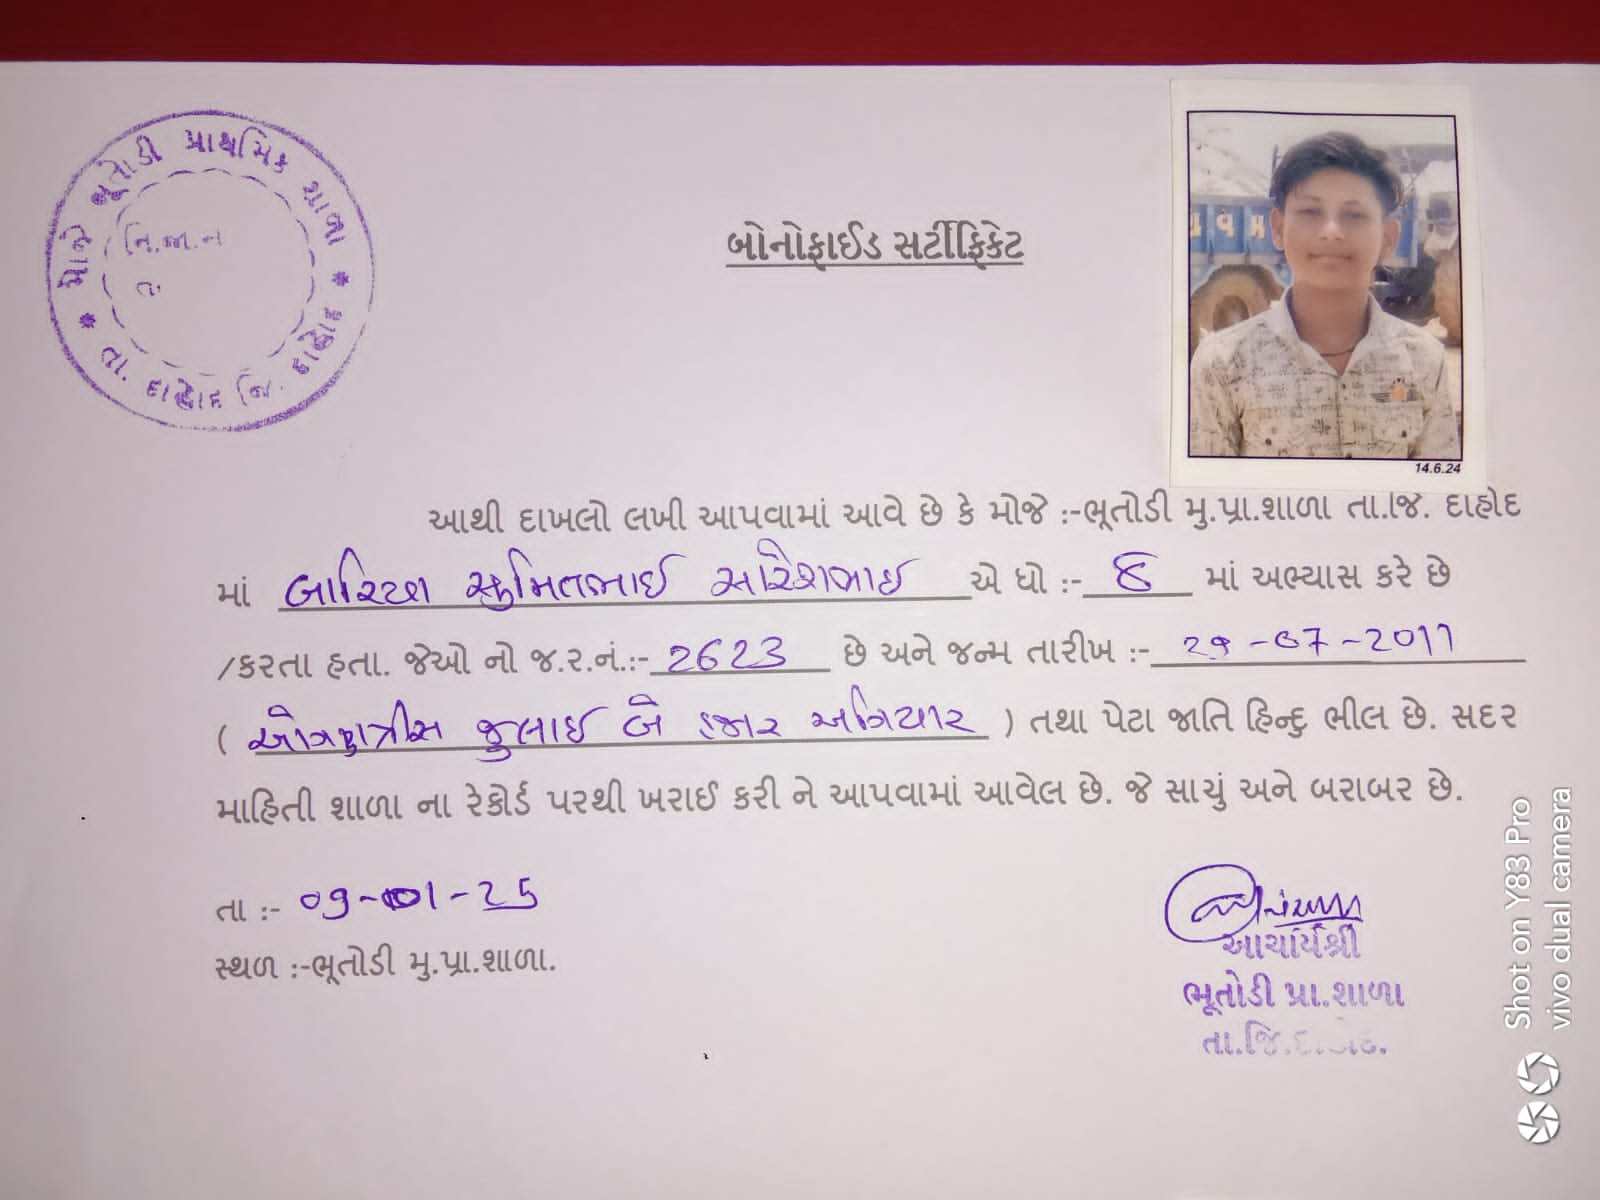 મોજે ભૂતોડી પ્રાથમિક શાળા
* તા. દાહોદ જિ. દાહોદ *
નિ.જા.ન
બોનોફાઈડ સર્ટીફિકેટ
14.6.24
આથી દાખલો લખી આપવામાં આવે છે કે મોજે :-ભૂતોડી મુ.પ્રા.શાળા તા.જિ. દાહોદ
માં બારિયા સુમિતભાઈ સુરેશભાઈ એ ધો :- ૮ માં અભ્યાસ કરે છે
/કરતા હતા. જેઓ નો જ.ર.નં.:- 2623 છે અને જન્મ તારીખ :- 29-07-2011
( ઓગણત્રીસ જુલાઈ બે હજાર અગિયાર ) તથા પેટા જાતિ હિન્દુ ભીલ છે. સદર
માહિતી શાળા ના રેકોર્ડ પરથી ખરાઈ કરી ને આપવામાં આવેલ છે. જે સાચું અને બરાબર છે.
તા :- 09-01-25
સ્થળ :-ભૂતોડી મુ.પ્રા.શાળા.
આચાર્યશ્રી
ભૂતોડી પ્રા.શાળા
તા.જિ.દાહોદ.
Shot on Y83 Pro
vivo dual camera